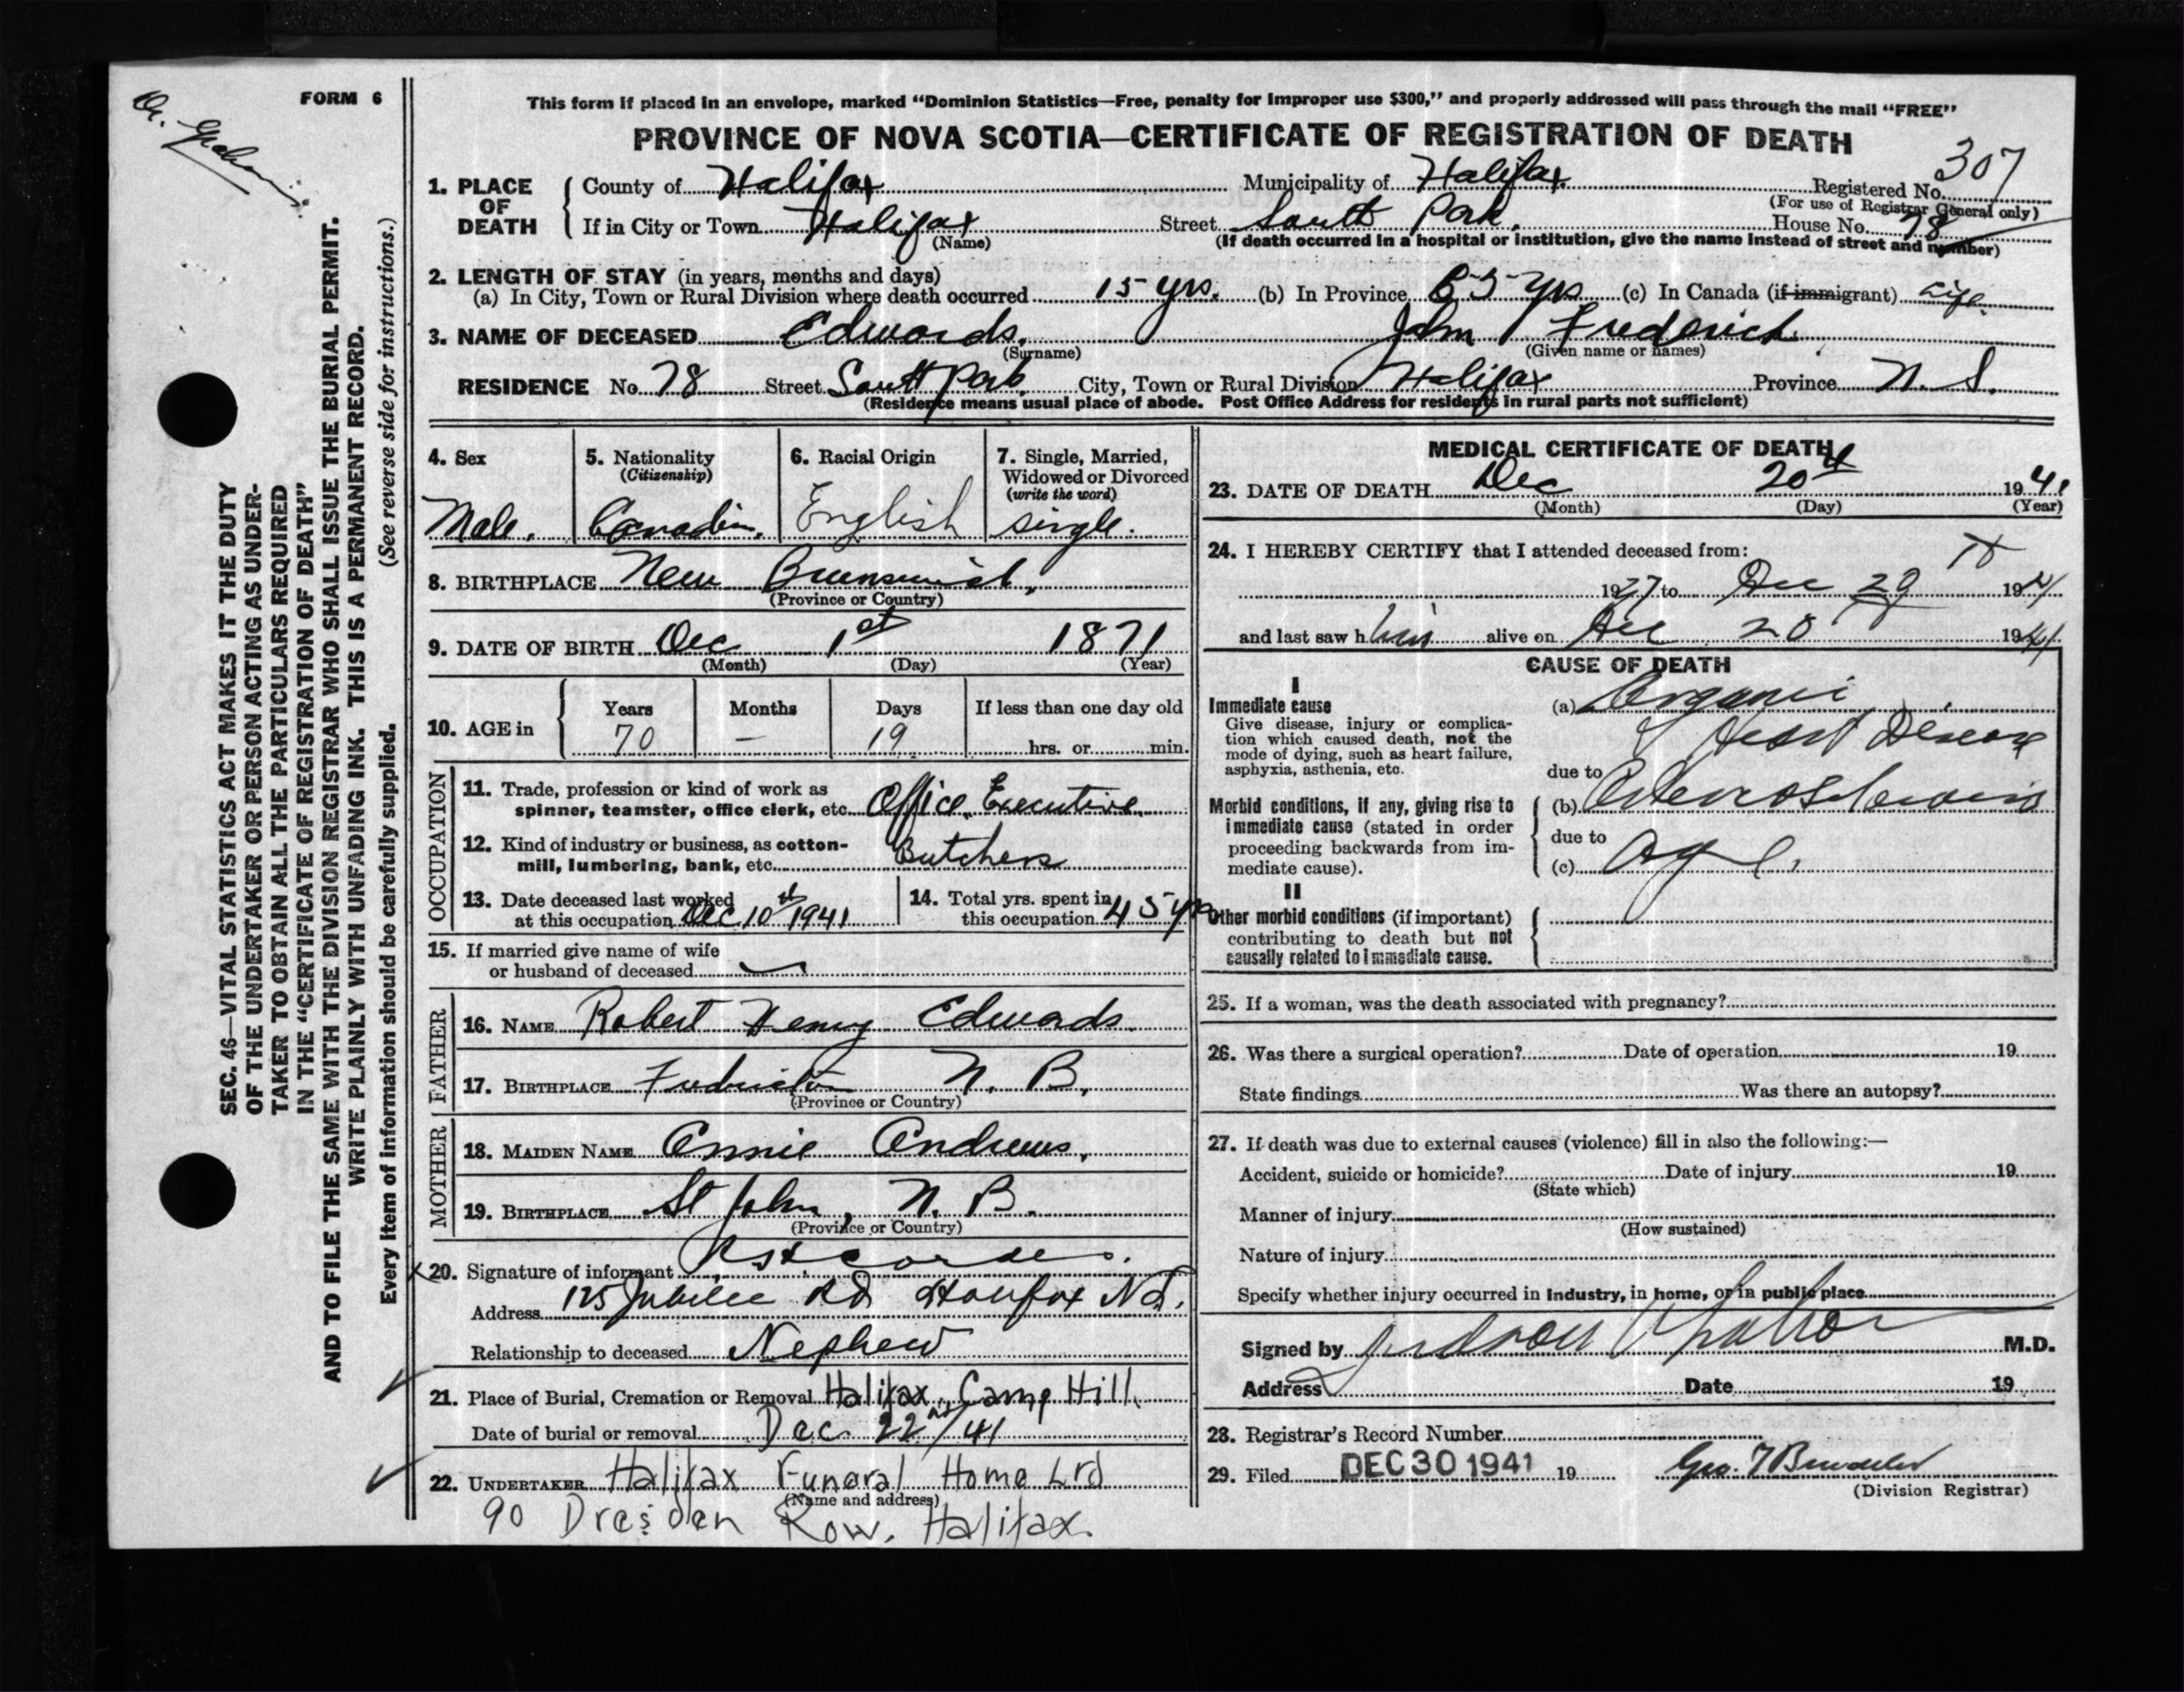 FORM 6
SEC. 46—VITAL STATISTICS ACT MAKES IT THE DUTY
OF THE UNDERTAKER OR PERSON ACTING AS UNDER-
TAKER TO OBTAIN ALL THE PARTICULARS REQUIRED
IN THE "CERTIFICATE OF REGISTRATION OF DEATH"
AND TO FILE THE SAME WITH THE DIVISION REGISTRAR WHO SHALL ISSUE THE BURIAL PERMIT.
WRITE PLAINLY WITH UNFADING INK. THIS IS A PERMANENT RECORD.
Every item of information should be carefully supplied. (See reverse side for instructions.)
This form if placed in an envelope, marked "Dominion Statistics—Free, penalty for improper use $300," and properly addressed will pass through the mail "FREE"
PROVINCE OF NOVA SCOTIA—CERTIFICATE OF REGISTRATION OF DEATH
1. PLACE OF DEATH County of Halifax Municipality of Halifax Registered No. 307
(For use of Registrar General only)
If in City or Town Halifax Street South Park. House No. 78
(Name) (If death occurred in a hospital or institution, give the name instead of street and number)
2. LENGTH OF STAY (in years, months and days)
(a) In City, Town or Rural Division where death occurred 15 yrs. (b) In Province 65 yrs (c) In Canada (if immigrant) Life.
3. NAME OF DECEASED Edwards, John Frederick
(Surname) (Given name or names)
RESIDENCE No. 78 Street South Park City, Town or Rural Division Halifax Province N. S.
(Residence means usual place of abode. Post Office Address for residents in rural parts not sufficient)
4. Sex 5. Nationality 6. Racial Origin 7. Single, Married,
(Citizenship) Widowed or Divorced
(write the word)
Male. Canadian. English single.
8. BIRTHPLACE New Brunswick,
(Province or Country)
9. DATE OF BIRTH Dec 1st 1871
(Month) (Day) (Year)
10. AGE in Years Months Days If less than one day old
70 — 19 hrs. or min.
OCCUPATION
11. Trade, profession or kind of work as
spinner, teamster, office clerk, etc. Office Executive.
12. Kind of industry or business, as cotton-
mill, lumbering, bank, etc. Butchers
13. Date deceased last worked
at this occupation Dec 10th 1941
14. Total yrs. spent in
this occupation 45 yrs
15. If married give name of wife
or husband of deceased
FATHER
16. NAME Robert Henry Edwards.
17. BIRTHPLACE Fredricton N. B.
(Province or Country)
MOTHER
18. MAIDEN NAME Annie Andrews.
19. BIRTHPLACE St John, N. B.
(Province or Country)
20. Signature of informant
Address 125 Jubilee Rd Halifax N.S.
Relationship to deceased Nephew
21. Place of Burial, Cremation or Removal Halifax, Camp Hill
Date of burial or removal Dec. 22nd/41
22. UNDERTAKER Halifax Funeral Home Ltd
(Name and address)
90 Dresden Row. Halifax.
MEDICAL CERTIFICATE OF DEATH
23. DATE OF DEATH Dec 20th 1941
(Month) (Day) (Year)
24. I HEREBY CERTIFY that I attended deceased from:
1937 to Dec 20 1941
and last saw h him alive on Dec 20 1941
CAUSE OF DEATH
I
Immediate cause
Give disease, injury or complica-
tion which caused death, not the
mode of dying, such as heart failure,
asphyxia, asthenia, etc.
(a) Organic
Heart Disease
due to
Morbid conditions, if any, giving rise to
immediate cause (stated in order
proceeding backwards from im-
mediate cause).
(b) Arteriosclerosis
due to
(c) Age.
II
Other morbid conditions (if important)
contributing to death but not
causally related to immediate cause.
25. If a woman, was the death associated with pregnancy?
26. Was there a surgical operation? Date of operation 19
State findings Was there an autopsy?
27. If death was due to external causes (violence) fill in also the following:—
Accident, suicide or homicide? Date of injury 19
(State which)
Manner of injury
(How sustained)
Nature of injury
Specify whether injury occurred in industry, in home, or in public place
Signed by M.D.
Address Date 19
28. Registrar's Record Number
29. Filed DEC 30 1941 19
(Division Registrar)